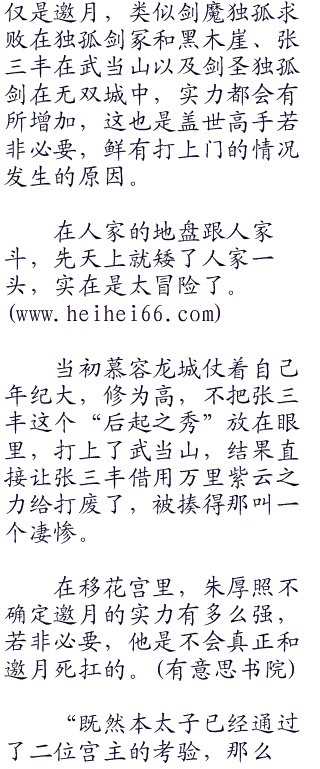 仅是邀月，类似剑魔独孤求
败在独孤剑冢和黑木崖、张
三丰在武当山以及剑圣独孤
剑在无双城中，实力都会有
所增加，这也是盖世高手若
非必要，鲜有打上门的情况
发生的原因。
在人家的地盘跟人家
斗，先天上就矮了人家一
头，实在是太冒险了。
(www.heihei66.com)
当初慕容龙城仗着自己
年纪大，修为高，不把张三
丰这个“后起之秀”放在眼
里，打上了武当山，结果直
接让张三丰借用万里紫云之
力给打废了，被揍得那叫一
个凄惨。
在移花宫里，朱厚照不
确定邀月的实力有多么强，
若非必要，他是不会真正和
邀月死扛的。(有意思书院)
“既然本太子已经通过
了二位宫主的考验，那么